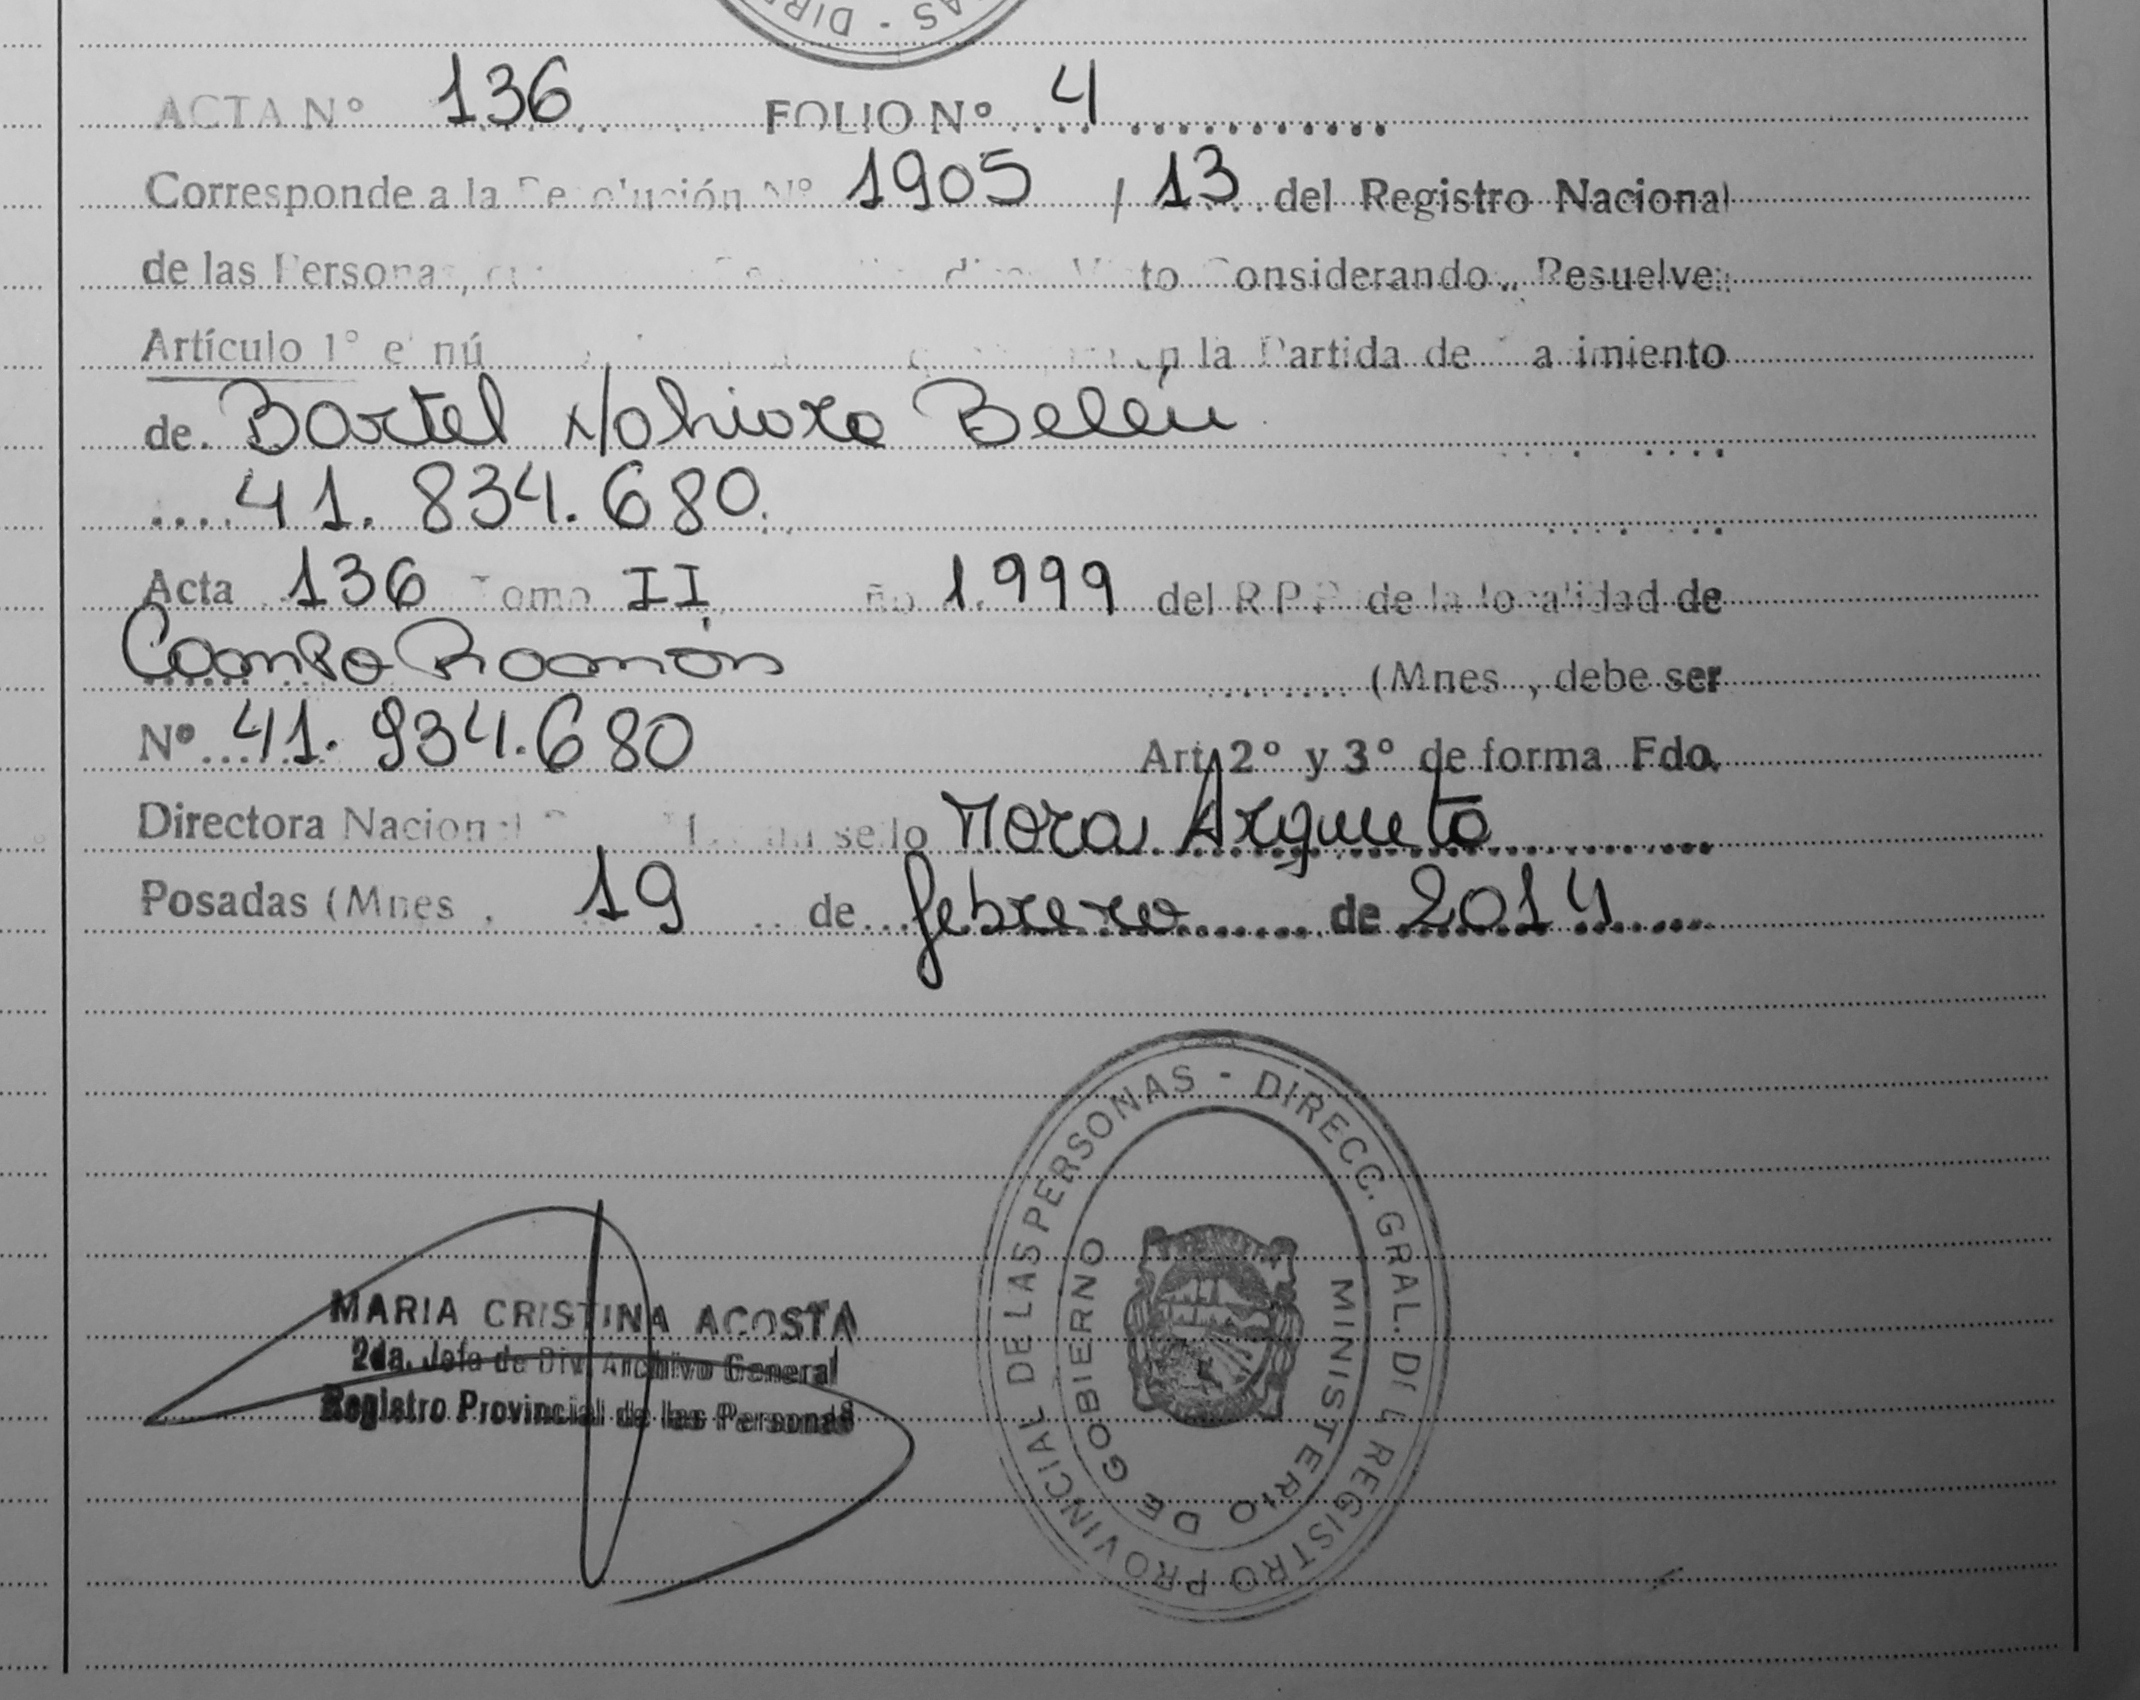 ACTA Nº 136 FOLIO Nº 4
Corresponde a la Resolución Nº 1905 / 13 del Registro Nacional
de las Personas, Considerando.. Resuelve:
Artículo 1º el nú en la Partida de Nacimiento
de Bartel Nohiora Belén
41.834.680
Acta 136 Tomo II Año 1.999 del R.P.P. de la localidad de
Campo Ramón (Mnes., debe ser
Nº 41.934.680 Art. 2º y 3º de forma Fdo.
Directora Nacional sello Mora Argueta
Posadas (Mnes. 19 de febrero de 2014
MARIA CRISTINA ACOSTA
2da. Jefa de Div. Archivo General
Registro Provincial de las Personas
DIRECC. GRAL. DEL REGISTRO PROVINCIAL DE LAS PERSONAS -
MINISTERIO DE GOBIERNO